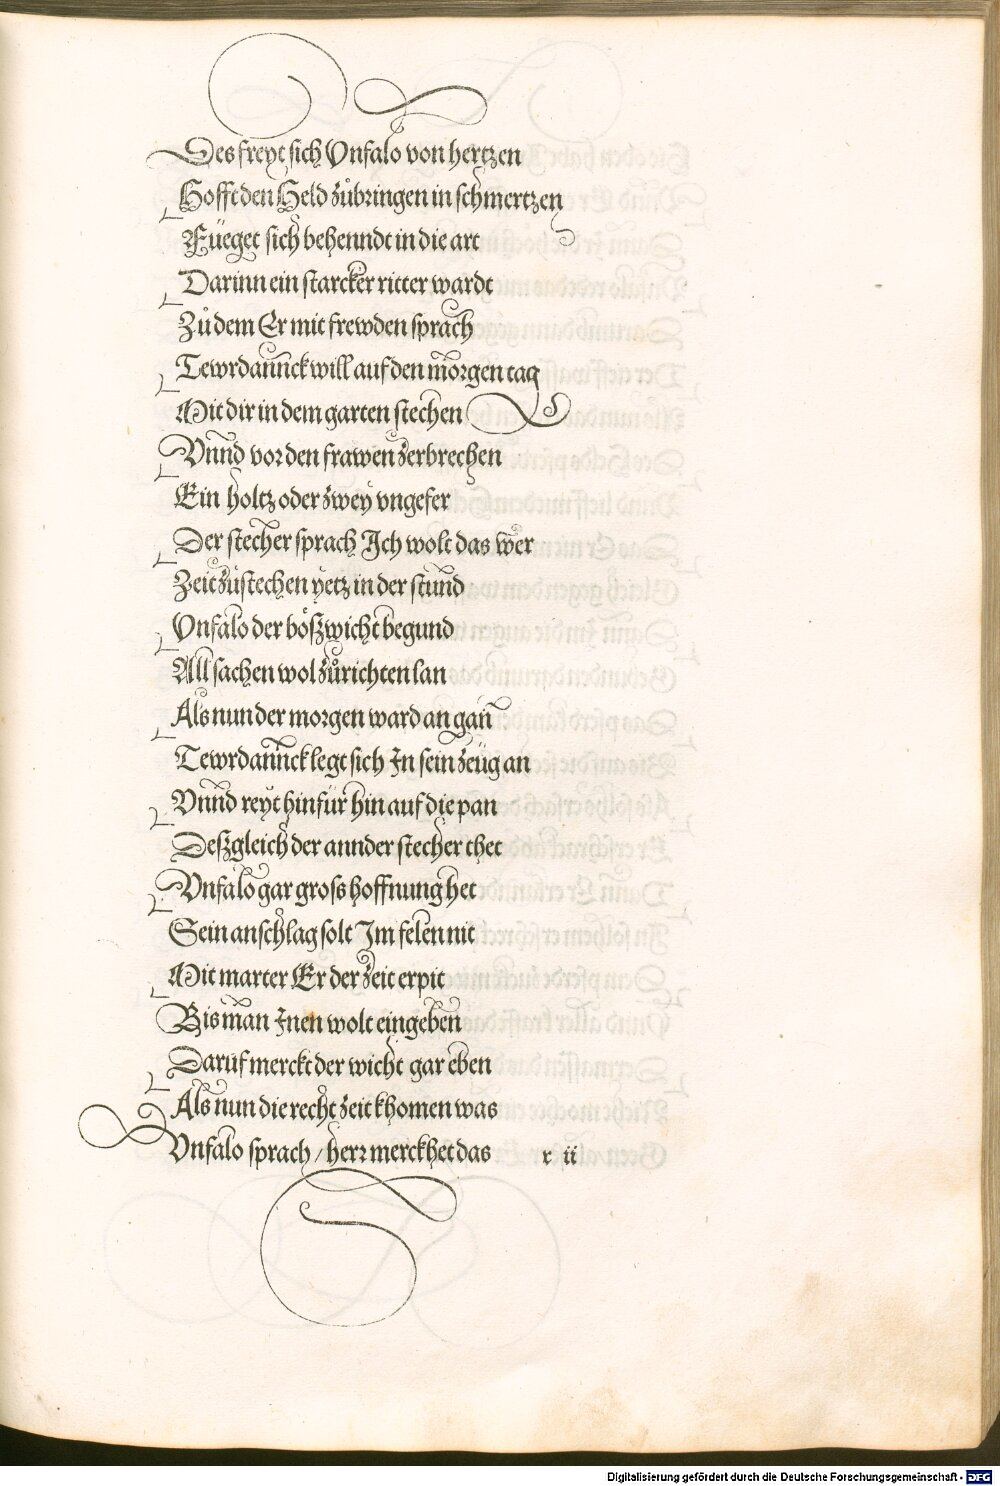 Des freyt sich Vnfalo von hertzen
Hofft den Held zůbringen in schmertzen
Füeget sich behenndt in die art
Darinn ein starcker ritter wardt
Zů dem Er mit frewden sprach
Tewrdannck will auf den morgen tag
Mit dir in dem garten stechen
Vnnd vor den frawen zerbrechen
Ein holtz oder zwey vngefer
Der stecher sprach Ich wolt das wer
Zeit zůstechen yetz in der stund
Vnfalo der bößwicht begund
All sachen wol zůrichten lan
Als nun der morgen ward an gan
Tewrdannck legt sich In sein zeüg an
Vnnd reyt hinfür hin auf die pan
Deßgleich der annder stecher thet
Vnfalo gar gross hoffnung het
Sein anschlag solt Im felen nit
Mit marter Er der zeit erpit
Bis man Inen wolt eingeben
Daruf merckt der wicht gar eben
Als nun die recht zeit khomen was
Vnfalo sprach / herr merckhet das
r ii
Digitalisierung gefördert durch die Deutsche Forschungsgemeinschaft - DFG